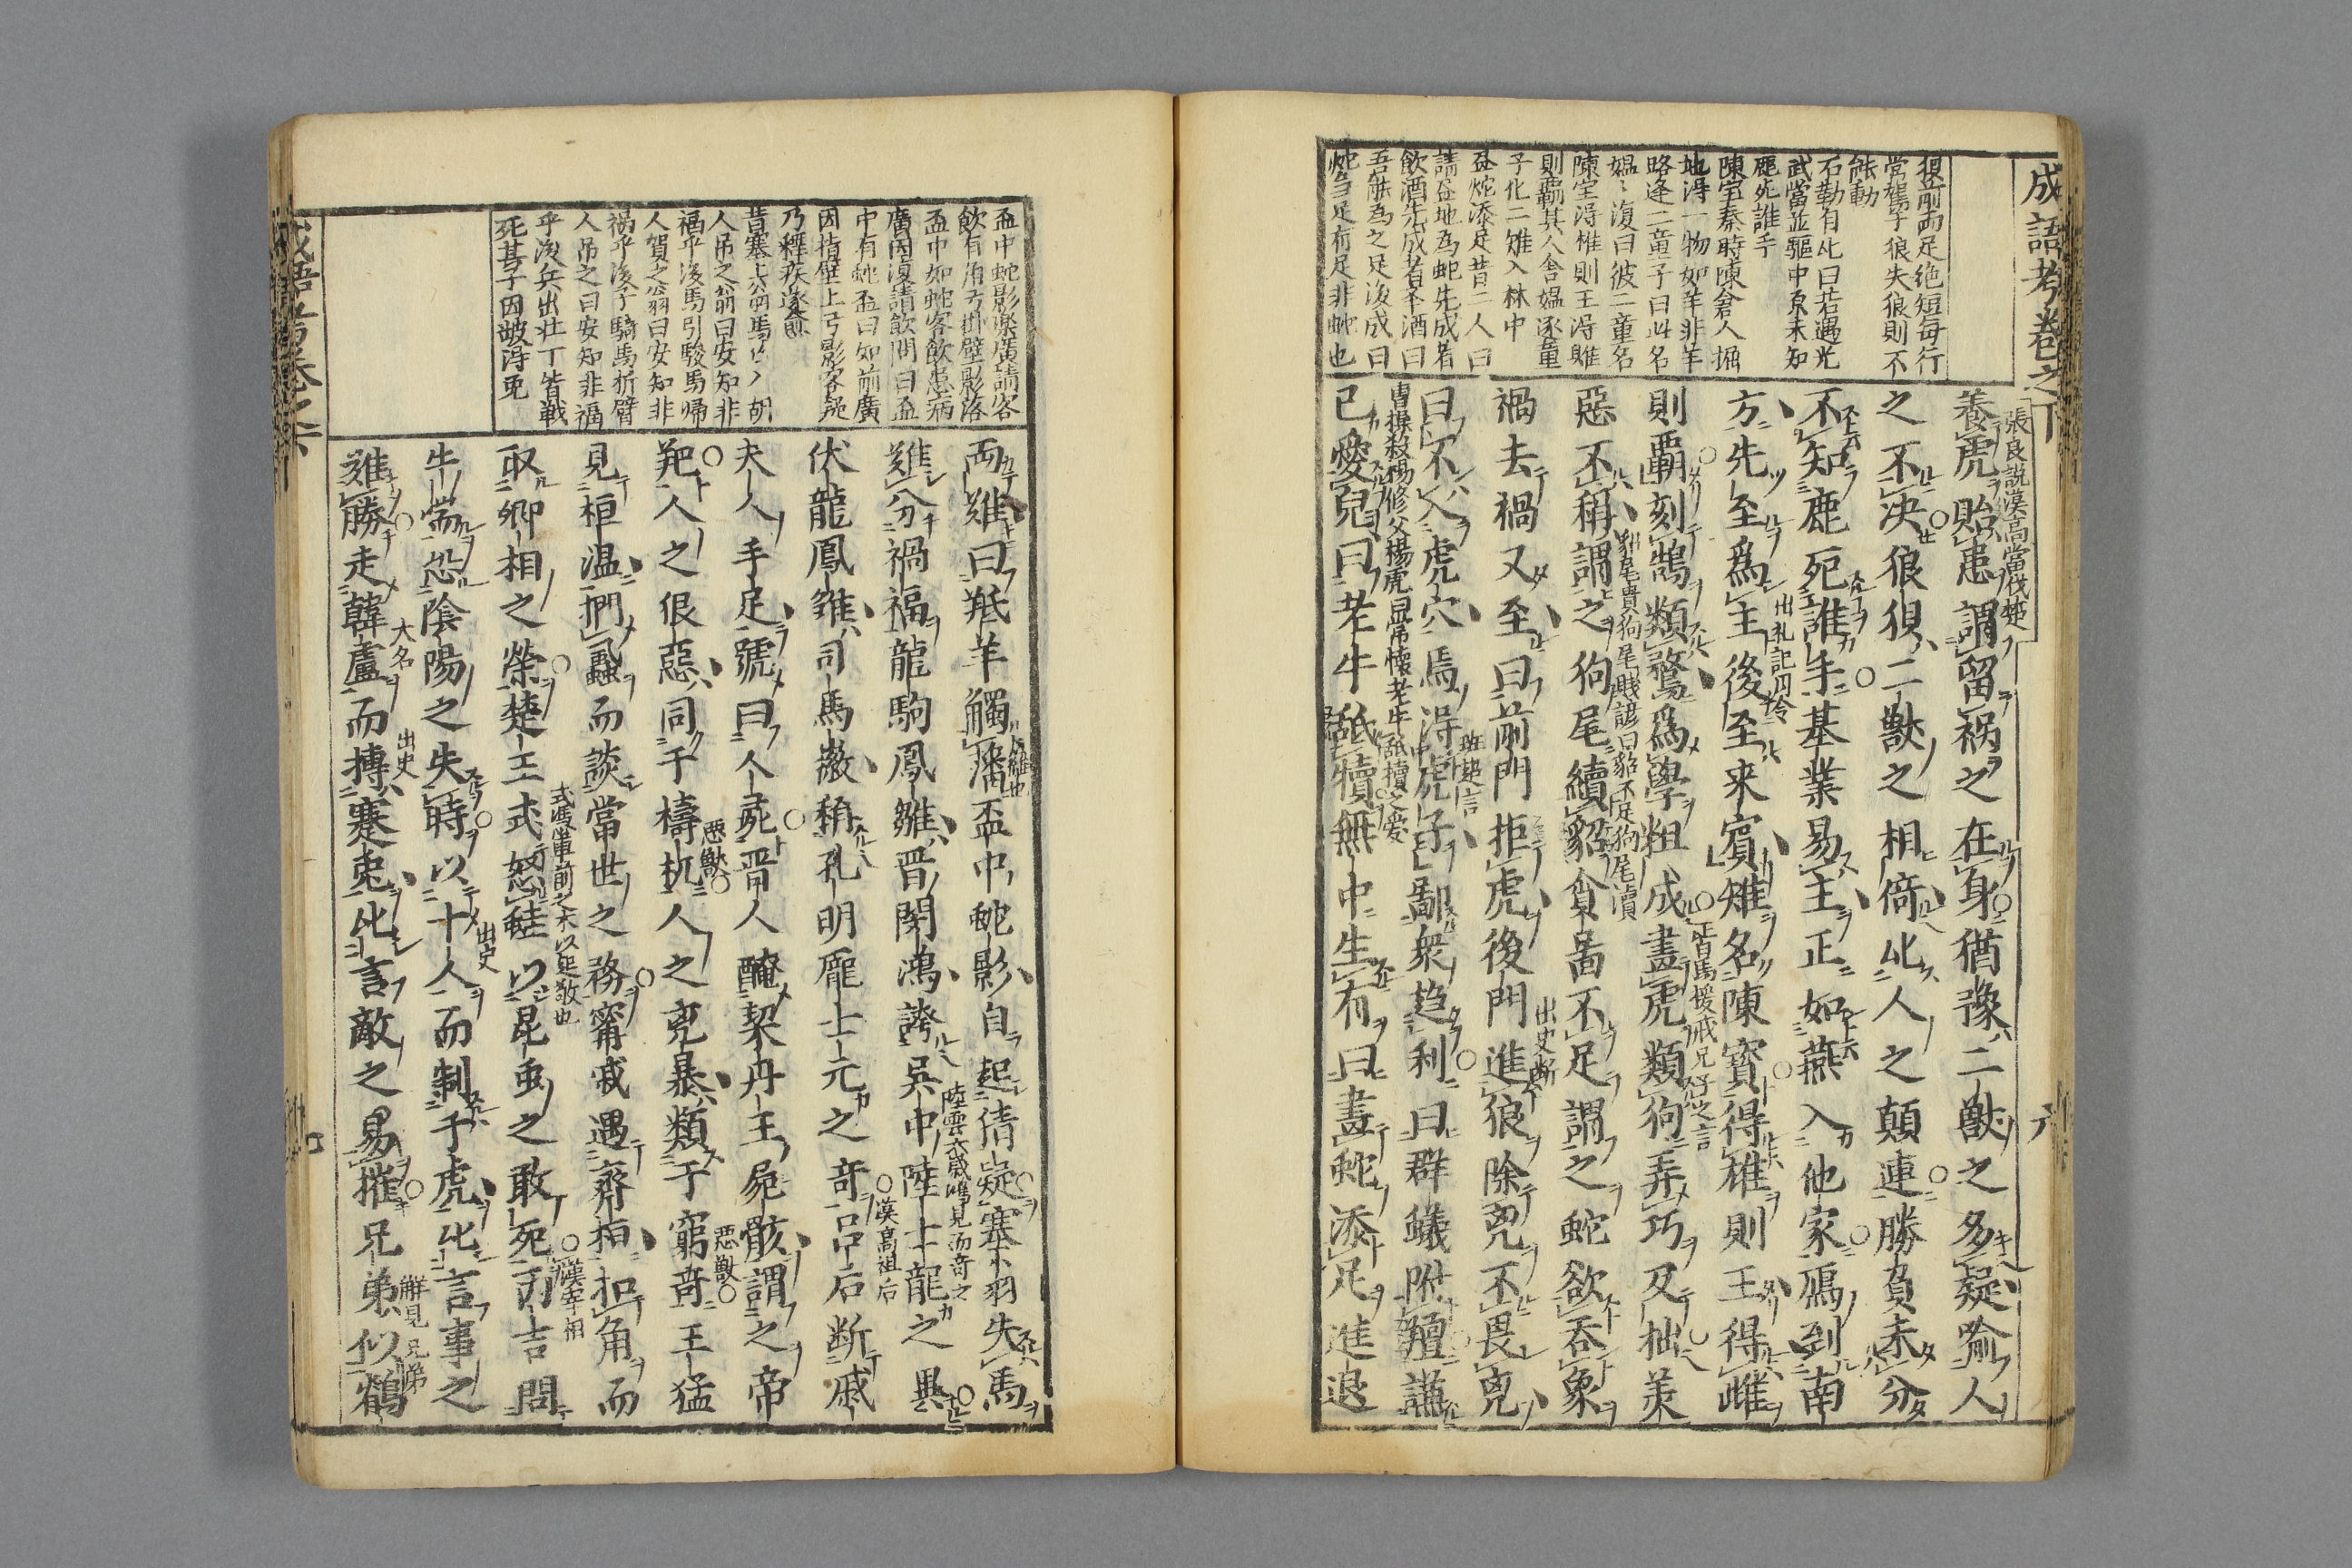 成語考卷之下
狽前兩足絶短每行
常駕于狼失狼則不
能動
石勒有此曰若遇光
武當並驅中原未知
鹿死誰手
陳宝秦時陳倉人掘
地淂一物如羊非羊
路逢二童子曰此名
媼媼復曰彼二童名
陳宝淂雄則王淂雌
則霸其人舍媼逐童
子化二雉入林中
盃蛇添足昔二人曰
請畫地為蛇先成者
飲酒先成者举酒曰
吾能為之足後成曰
蛇固足有足非蛇也
張良説漢高當伐楚
養虎貽患謂留禍之在身猶豫二獸之多疑喻人
之不决狼狽二獸之相倚比人之顛連勝負未分
不知鹿死誰手基業易主正如燕入他家鴈到南
方先至爲主後至来賓雉名陳寶得雄則王得雌
出礼記月令
則覇刻鵠類鶩爲學粗成畫虎類狗弄巧反拙羙
正自馬援戒兄子之言
惡不稱謂之狗尾續貂貪啚不足謂之蛇欲吞象
貂尾貴狗尾賤諺曰貂不足狗尾瀆
禍去禍又至曰前門拒虎後門進狼除兇不畏兇
出史断
曰不入虎穴焉淂虎子鄙衆趋利曰群蟻附羶謙
班超言
曹操殺楊修父楊彪
已愛兒曰老牛舐犢無中生有曰畫蛇添足進退
六
盃中蛇影樂廣請客
飲有角弓掛壁影落
盃中如蛇客飲患病
廣因復請飲問曰盃
中有蛇盃曰如前廣
因指壁上弓影客疑
乃釋疾遂愈
昔塞上翁馬亡入胡
人吊之翁曰安知非
福乎後馬引駿馬帰
人賀之翁曰安知非
禍乎後子騎馬折臂
人吊之曰安知非福
乎後兵出壮丁皆戰
死其子因跛淂免
兩難曰羝羊觸藩盃中蛇影自起倩疑塞翁失馬
難分禍福龍駒鳳雛晋閔鴻誇吳中陸士龍之異
陸雲六歲鴻見而奇之
伏龍鳳雛司馬徽稱孔明龐士元之奇吕后断戚
漢髙祖后
夫人手足號曰人彘晋人醃契丹王屍骸謂之帝
羓人之很惡同于檮杌人之兇暴類于窮奇王猛
惡獸
惡獸
見桓温捫虱而談當世之務甯戚遇齊桓扣角而
取卿相之榮楚王式怒鼃以昆虫之敢死丙吉問
漢宰相
牛喘恐陰陽之失時以十人而制于虎比言事之
出史
難勝走韓盧而搏蹇兎比言敵之易摧兄弟似鶺
大名
出史
詳見兄弟
成語考卷之下
七